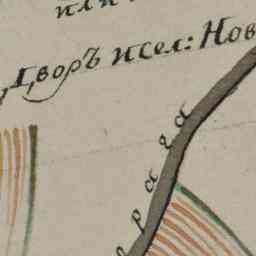 или
Дворъ исел: Нов
врага